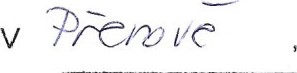 v Přerově ,